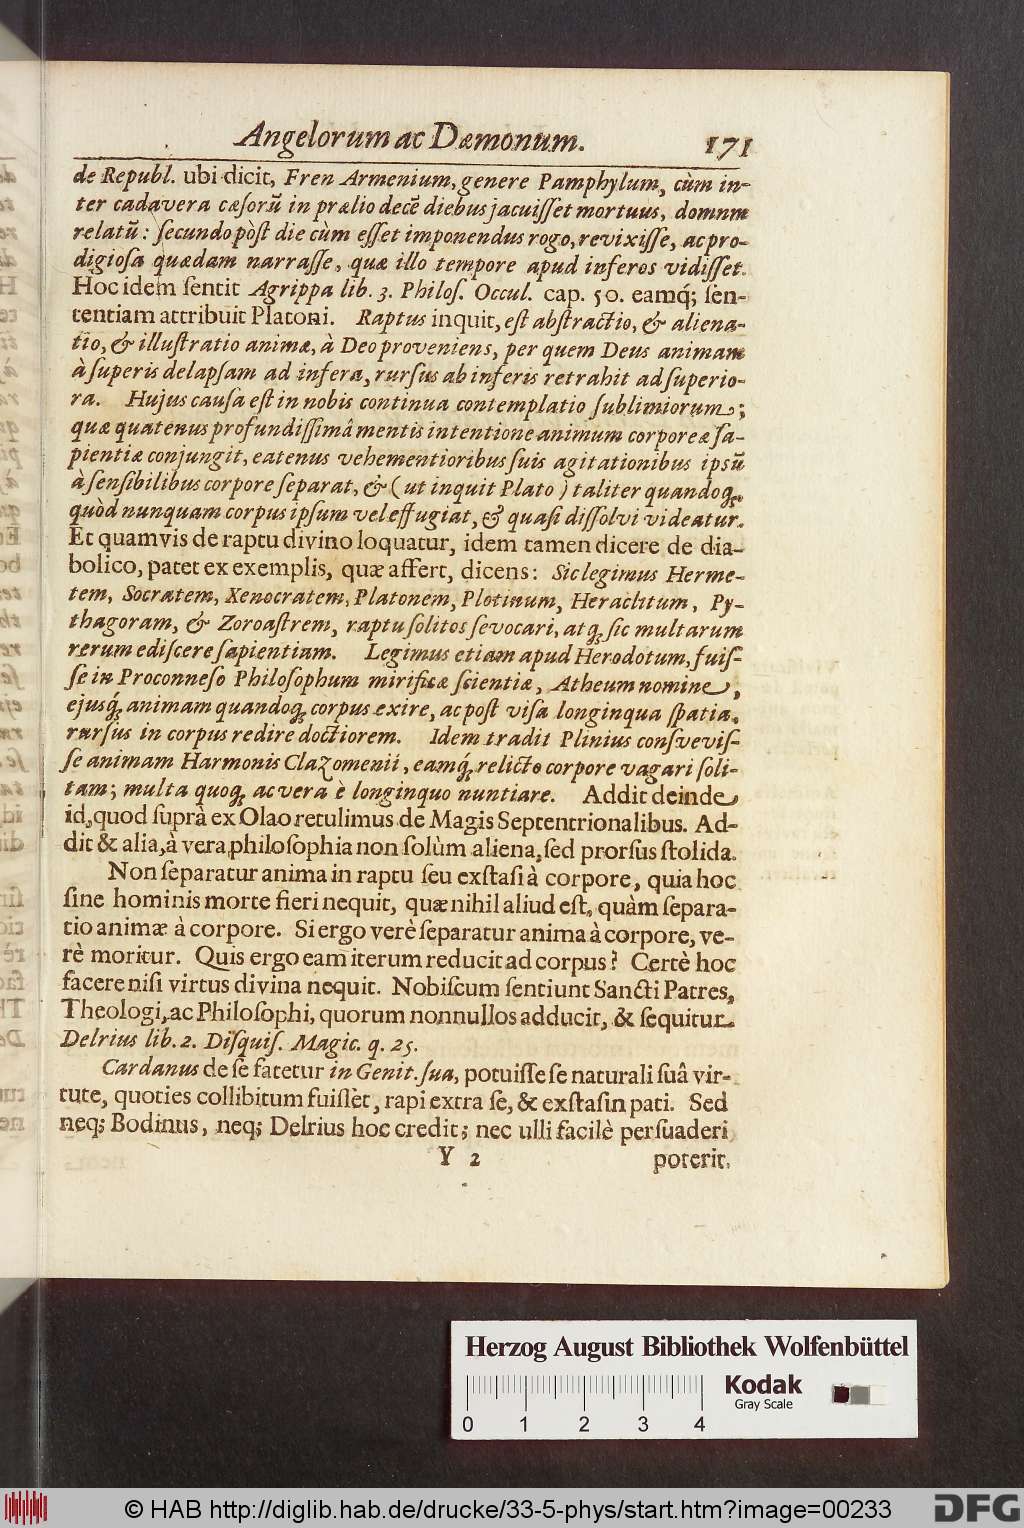 Angelorum ac Dæmonum. 171
de Republ. ubi dicit, Fren Armenium, genere Pamphylum, cùm in-
ter cadavera cæsorũ in prælio decẽ diebus jacuiſſet mortuus, domum
relatũ: ſecundo pòſt die cùm eſſet imponendus rogo, revixiſſe, ac pro-
digioſa quædam narraſſe, quæ illo tempore apud inferos vidiſſet.
Hoc idem ſentit Agrippa lib. 3. Philoſ. Occul. cap. 50. eamq́; ſen-
tentiam attribuit Platoni. Raptus inquit, eſt abſtractio, & aliena-
tio, & illuſtratio animæ, à Deo proveniens, per quem Deus animam
à ſuperis delapſam ad infera, rurſus ab inferis retrahit ad ſuperio-
ra. Hujus cauſa eſt in nobis continua contemplatio ſublimiorum;
quæ quatenus profundiſſimâ mentis intentione animum corporeæ ſa-
pientiæ conjungit, eatenus vehementioribus ſuis agitationibus ipsũ
à ſenſibilibus corpore ſeparat, & (ut inquit Plato) taliter quandoq;,
quòd nunquam corpus ipſum vel effugiat, & quaſi diſſolvi videatur.
Et quamvis de raptu divino loquatur, idem tamen dicere de dia-
bolico, patet ex exemplis, quæ affert, dicens: Sic legimus Herme-
tem, Socratem, Xenocratem, Platonem, Plotinum, Heraclitum, Py-
thagoram, & Zoroaſtrem, raptu ſolitos ſevocari, atq; ſic multarum
rerum ediſcere ſapientiam. Legimus etiam apud Herodotum, fuiſ-
ſe in Proconneſo Philoſophum mirificæ ſcientiæ, Atheum nomine,
ejusq́; animam quandoq; corpus exire, ac poſt viſa longinqua ſpatia,
rurſus in corpus redire doctiorem. Idem tradit Plinius conſveviſ-
ſe animam Harmonis Clazomenii, eamq́; relicto corpore vagari ſoli-
tam; multa quoq; ac vera è longinquo nuntiare. Addit deinde
id, quod ſuprà ex Olao retulimus de Magis Septentrionalibus. Ad-
dit & alia, à vera philoſophia non ſolùm aliena, ſed prorſus ſtolida.
Non ſeparatur anima in raptu ſeu exſtaſi à corpore, quia hoc
ſine hominis morte fieri nequit, quæ nihil aliud eſt, quàm ſepara-
tio animæ à corpore. Si ergo verè ſeparatur anima à corpore, ve-
rè moritur. Quis ergo eam iterum reducit ad corpus? Certè hoc
facere niſi virtus divina nequit. Nobiſcum ſentiunt Sancti Patres,
Theologi, ac Philoſophi, quorum nonnullos adducit, & ſequitur
Delrius lib. 2. Diſquiſ. Magic. q. 25.
Cardanus de ſe fatetur in Genit. ſua, potuiſſe ſe naturali ſuâ vir-
tute, quoties collibitum fuiſſèt, rapi extra ſe, & exſtaſin pati. Sed
neq; Bodinus, neq; Delrius hoc credit; nec ulli facilè perſuaderi
Y 2 poterit.
Herzog August Bibliothek Wolfenbüttel
Kodak
Gray Scale
0 1 2 3 4
© HAB http://diglib.hab.de/drucke/33-5-phys/start.htm?image=00233
DFG